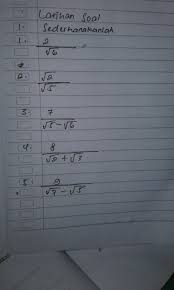 Latihan Soal
1. Sederhanakanlah
1. 2/√6
2. √2/√5
3. 7/√5-√6
4. 8/√2+√3
5. 9/√7-√5